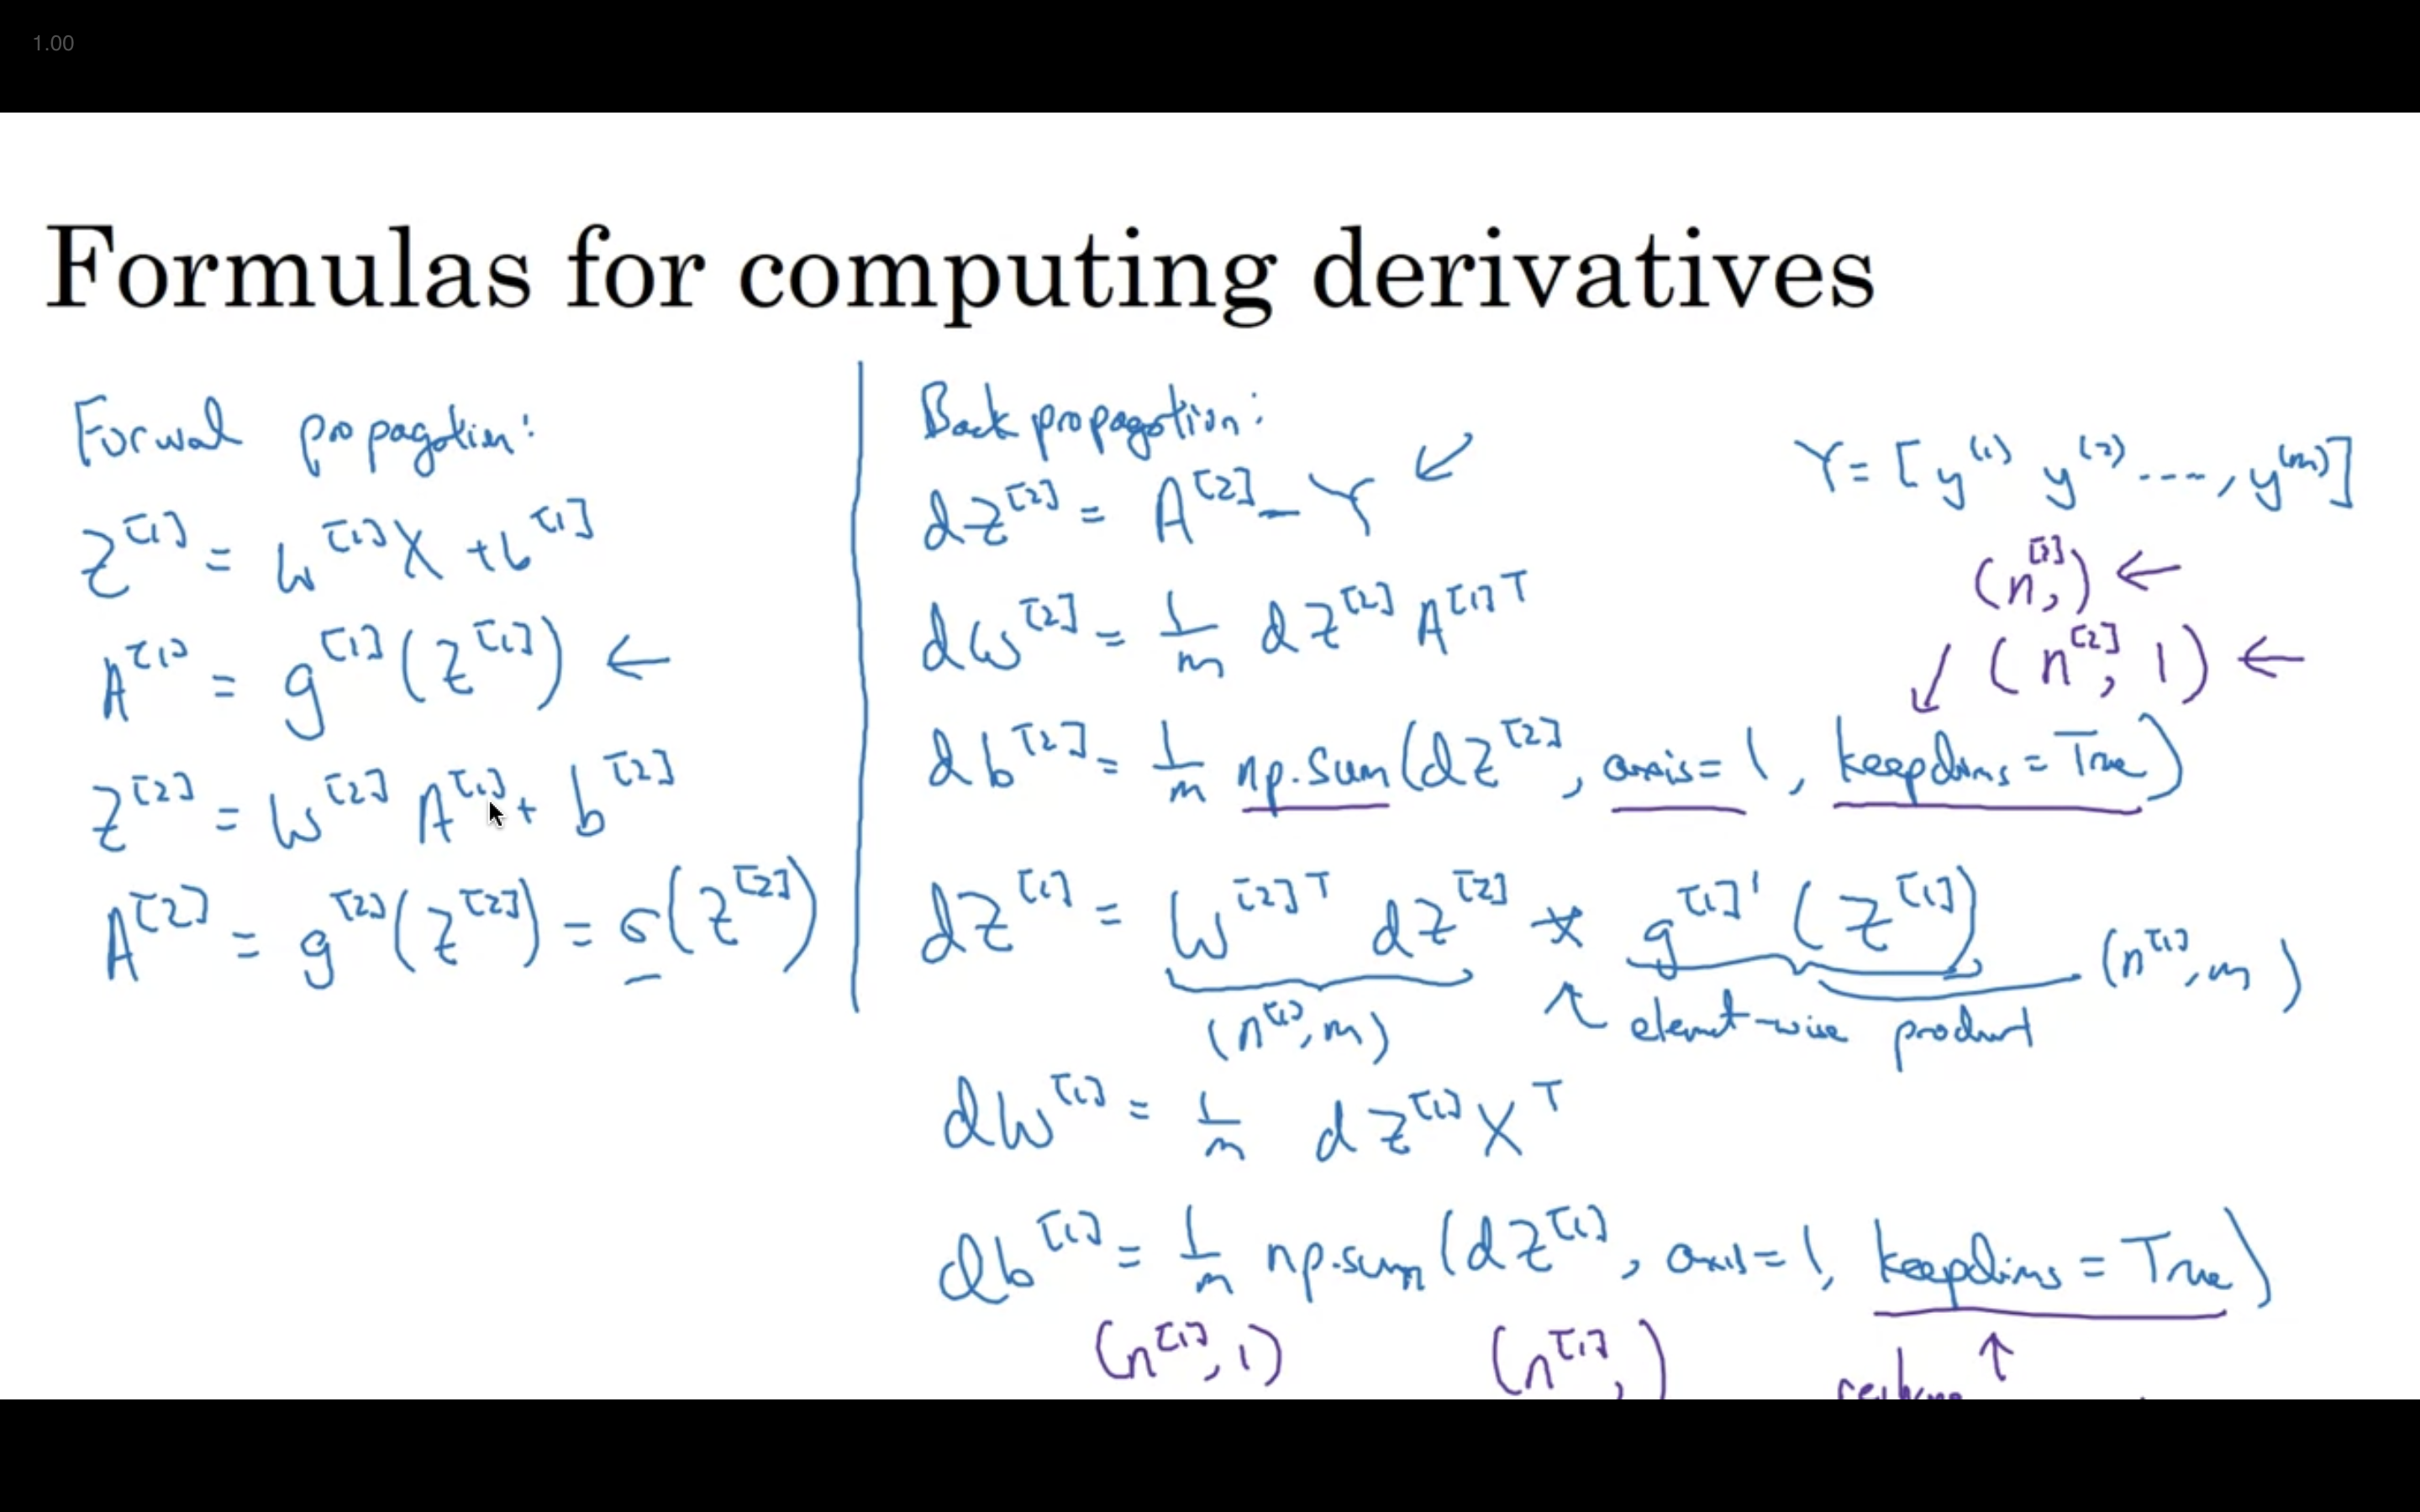 1.00
Formulas for computing derivatives
Forwal propagation:
Z^[1] = W^[1] X + b^[1]
A^[1] = g^[1](Z^[1]) ←
Z^[2] = W^[2] A^[1] + b^[2]
A^[2] = g^[2](Z^[2]) = σ(Z^[2])
Back propagation:
dZ^[2] = A^[2] - Y ↙
dW^[2] = 1/m dZ^[2] A^[1]T
db^[2] = 1/m np.sum(dZ^[2], axis=1, keepdims=True)
dZ^[1] = W^[2]T dZ^[2] * g^[1]'(Z^[1])
(n^[1], m) ↑ element-wise product (n^[1], m)
dW^[1] = 1/m dZ^[1] X^T
db^[1] = 1/m np.sum(dZ^[1], axis=1, keepdims=True)
(n^[1], 1) (n^[1],) ↑
Y = [y^(1) y^(2) ...., y^(m)]
(n^[2],) ←
↙ (n^[2], 1) ←